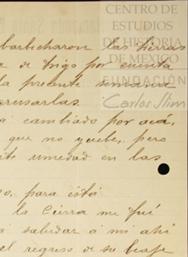 CENTRO DE
ESTUDIOS
DE HISTORIA
DE MEXICO
FUNDACIÓN
Carlos Slim
barbecharon las tierras
de trigo por cuenta
la presente semana
expresarlas.
cambiado por acá,
que no yuebe, pero
umedad en las
para está
la Cierra me fué
a saludar á mi ahi
el regreso de su biaje